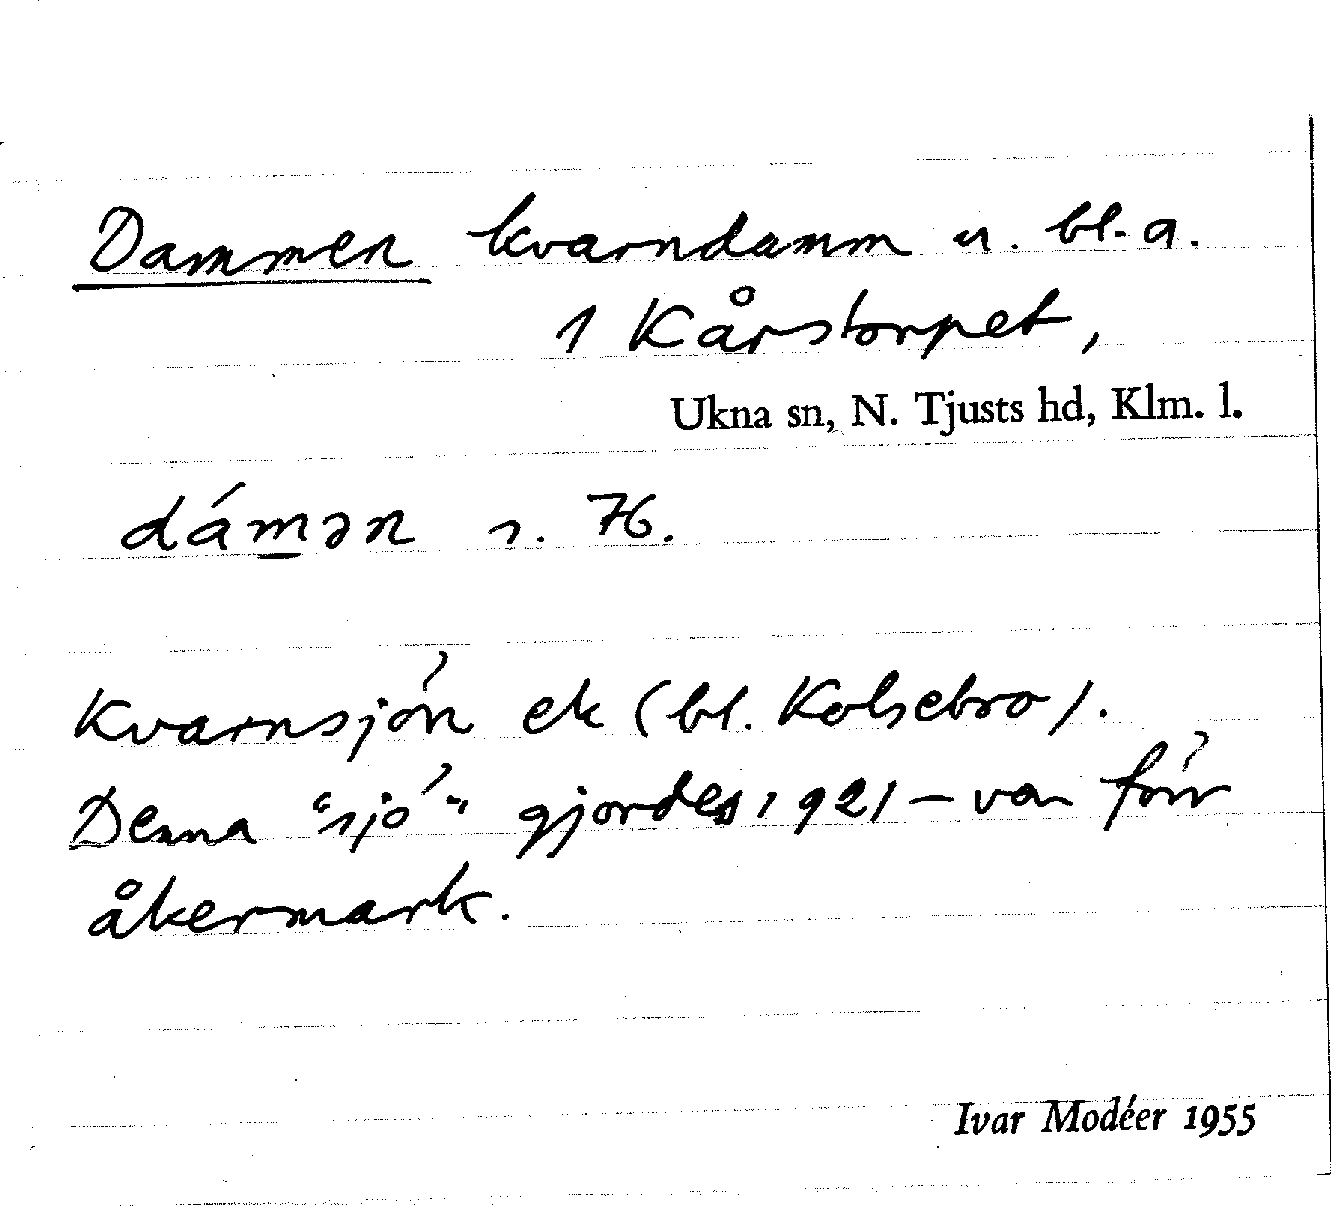 Dammen kvarndamm u. bl.a.
1 Kårstorpet,
Ukna sn, N. Tjusts hd, Klm. l.
dámən s. 76.
Kvarnsjön ek (bl. Kolsebro).
Denna "sjö" gjordes 1921 – var förr
åkermark.
Ivar Modéer 1955